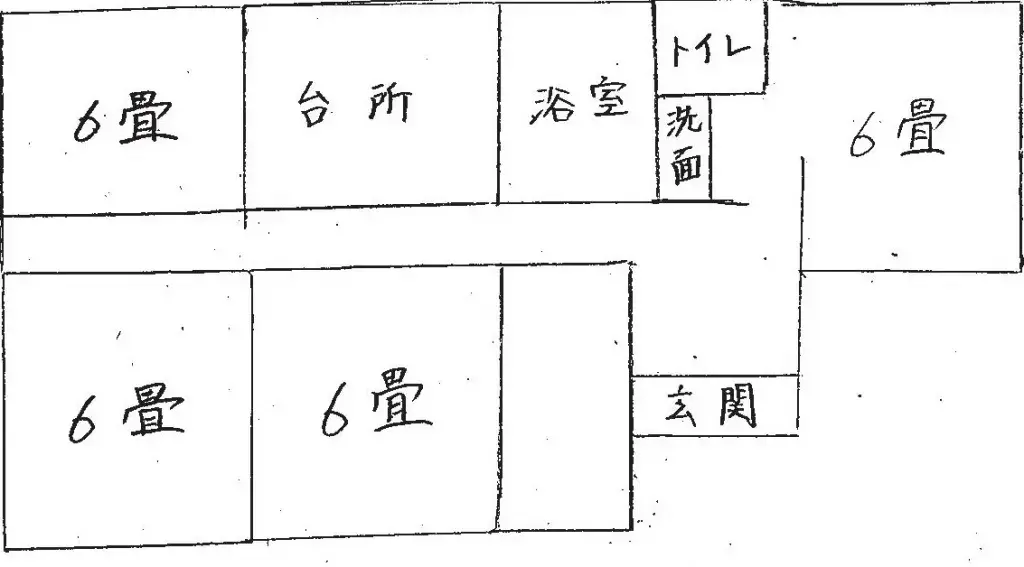 6畳
台所
浴室
トイレ
洗面
6畳
6畳
6畳
玄関